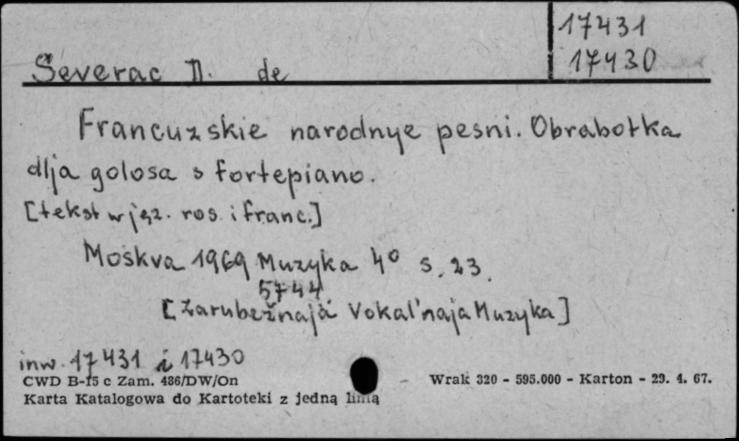 17431
17430
Severac D. de
Francuzskie narodnye pesni. Obrabotka
dlja golosa s fortepiano.
[tekst w jęz. ros. i franc.]
Moskva 1969 Muzyka 4° s. 23.
5744
[Zarubežnaja Vokal'naja Muzyka]
inw. 17431 i 17430
CWD B-15 c Zam. 486/DW/On
Wrak 320 - 595.000 - Karton - 29. 4. 67.
Karta Katalogowa do Kartoteki z jedną linią